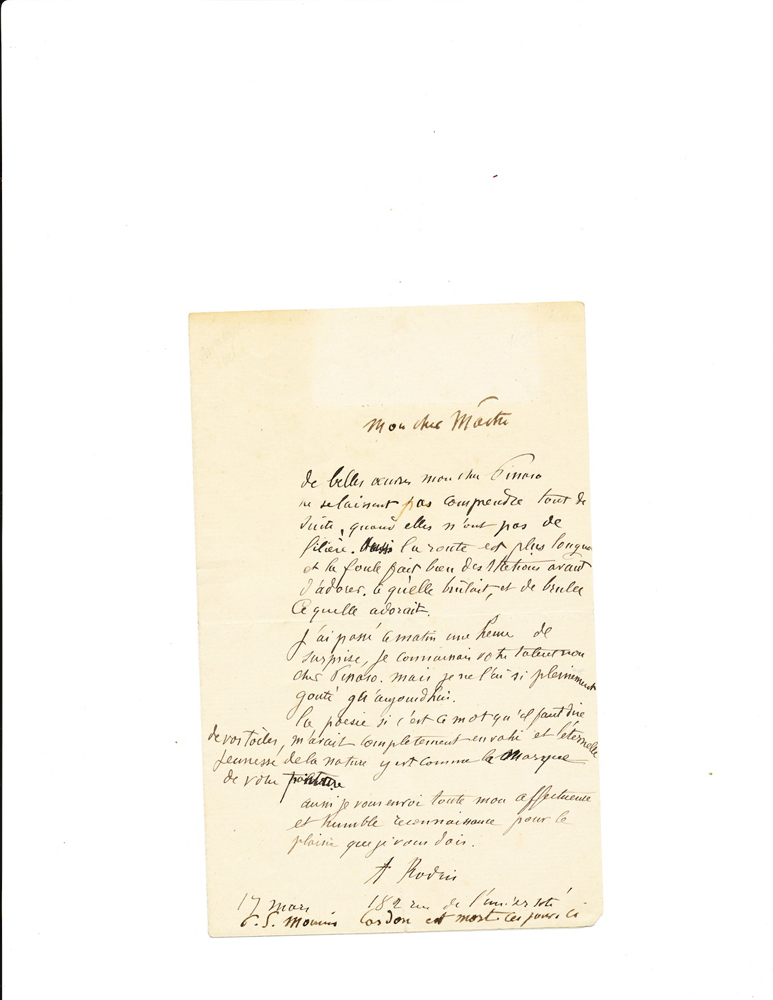 Mon cher Maitre
de belles œuvres mon cher Pissaro
ne se laissent pas comprendre tout de
suite, quand elles n'ont pas de
filière. Aussi la route est plus longue
et la foule fait bien des stations avant
d'adorer. ce qu'elle brulait, et de bruler
ce quelle adorait.
J'ai passé ce matin une heure de
surprise, je connaissais votre talent mon
cher Pissaro. mais je ne l'ai si pleinement
gouté qu'aujourdhui.
la poesie si c'est ce mot qu'il faut dire
de vos toiles, m'avait completement envahi et l'éternelle
jeunesse de la nature y est comme la marque
de votre peinture
aussi je vous envoi toute mon affectueuse
et humble reconnaissance pour le
plaisir que je vous dois.
A Rodin
17 mars 182 rue de l'université
P.S. est mort ces jours ci